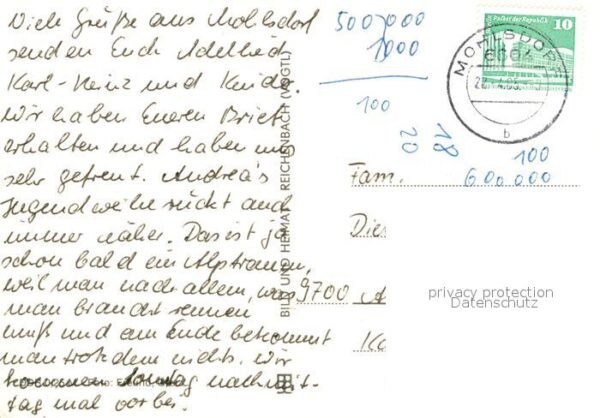 Viele Grüße aus Mohlsdorf
senden Euch Adelheid
Karl-Heinz und Kinder.
Wir haben Eueren Brief
erhalten und haben uns
sehr gefreut. Andrea's
Jugendweihe rückt auch
immer näher. Das ist ja
schon bald ein Alptraum,
weil man nach allem, was
man braucht rennen
muß und am Ende bekommt
man trotzdem nichts. Wir
kommen Sonntag nachmit-
tag mal vorbei.
BILD UND HEIMAT REICHENBACH (VOGTL)
5000000
1000
100
18
20
100
600 000
Palast der Republik 10
MOHLSDORF
6604
b
Fam.
Dies
9700 A
Ka
privacy protection
Datenschutz